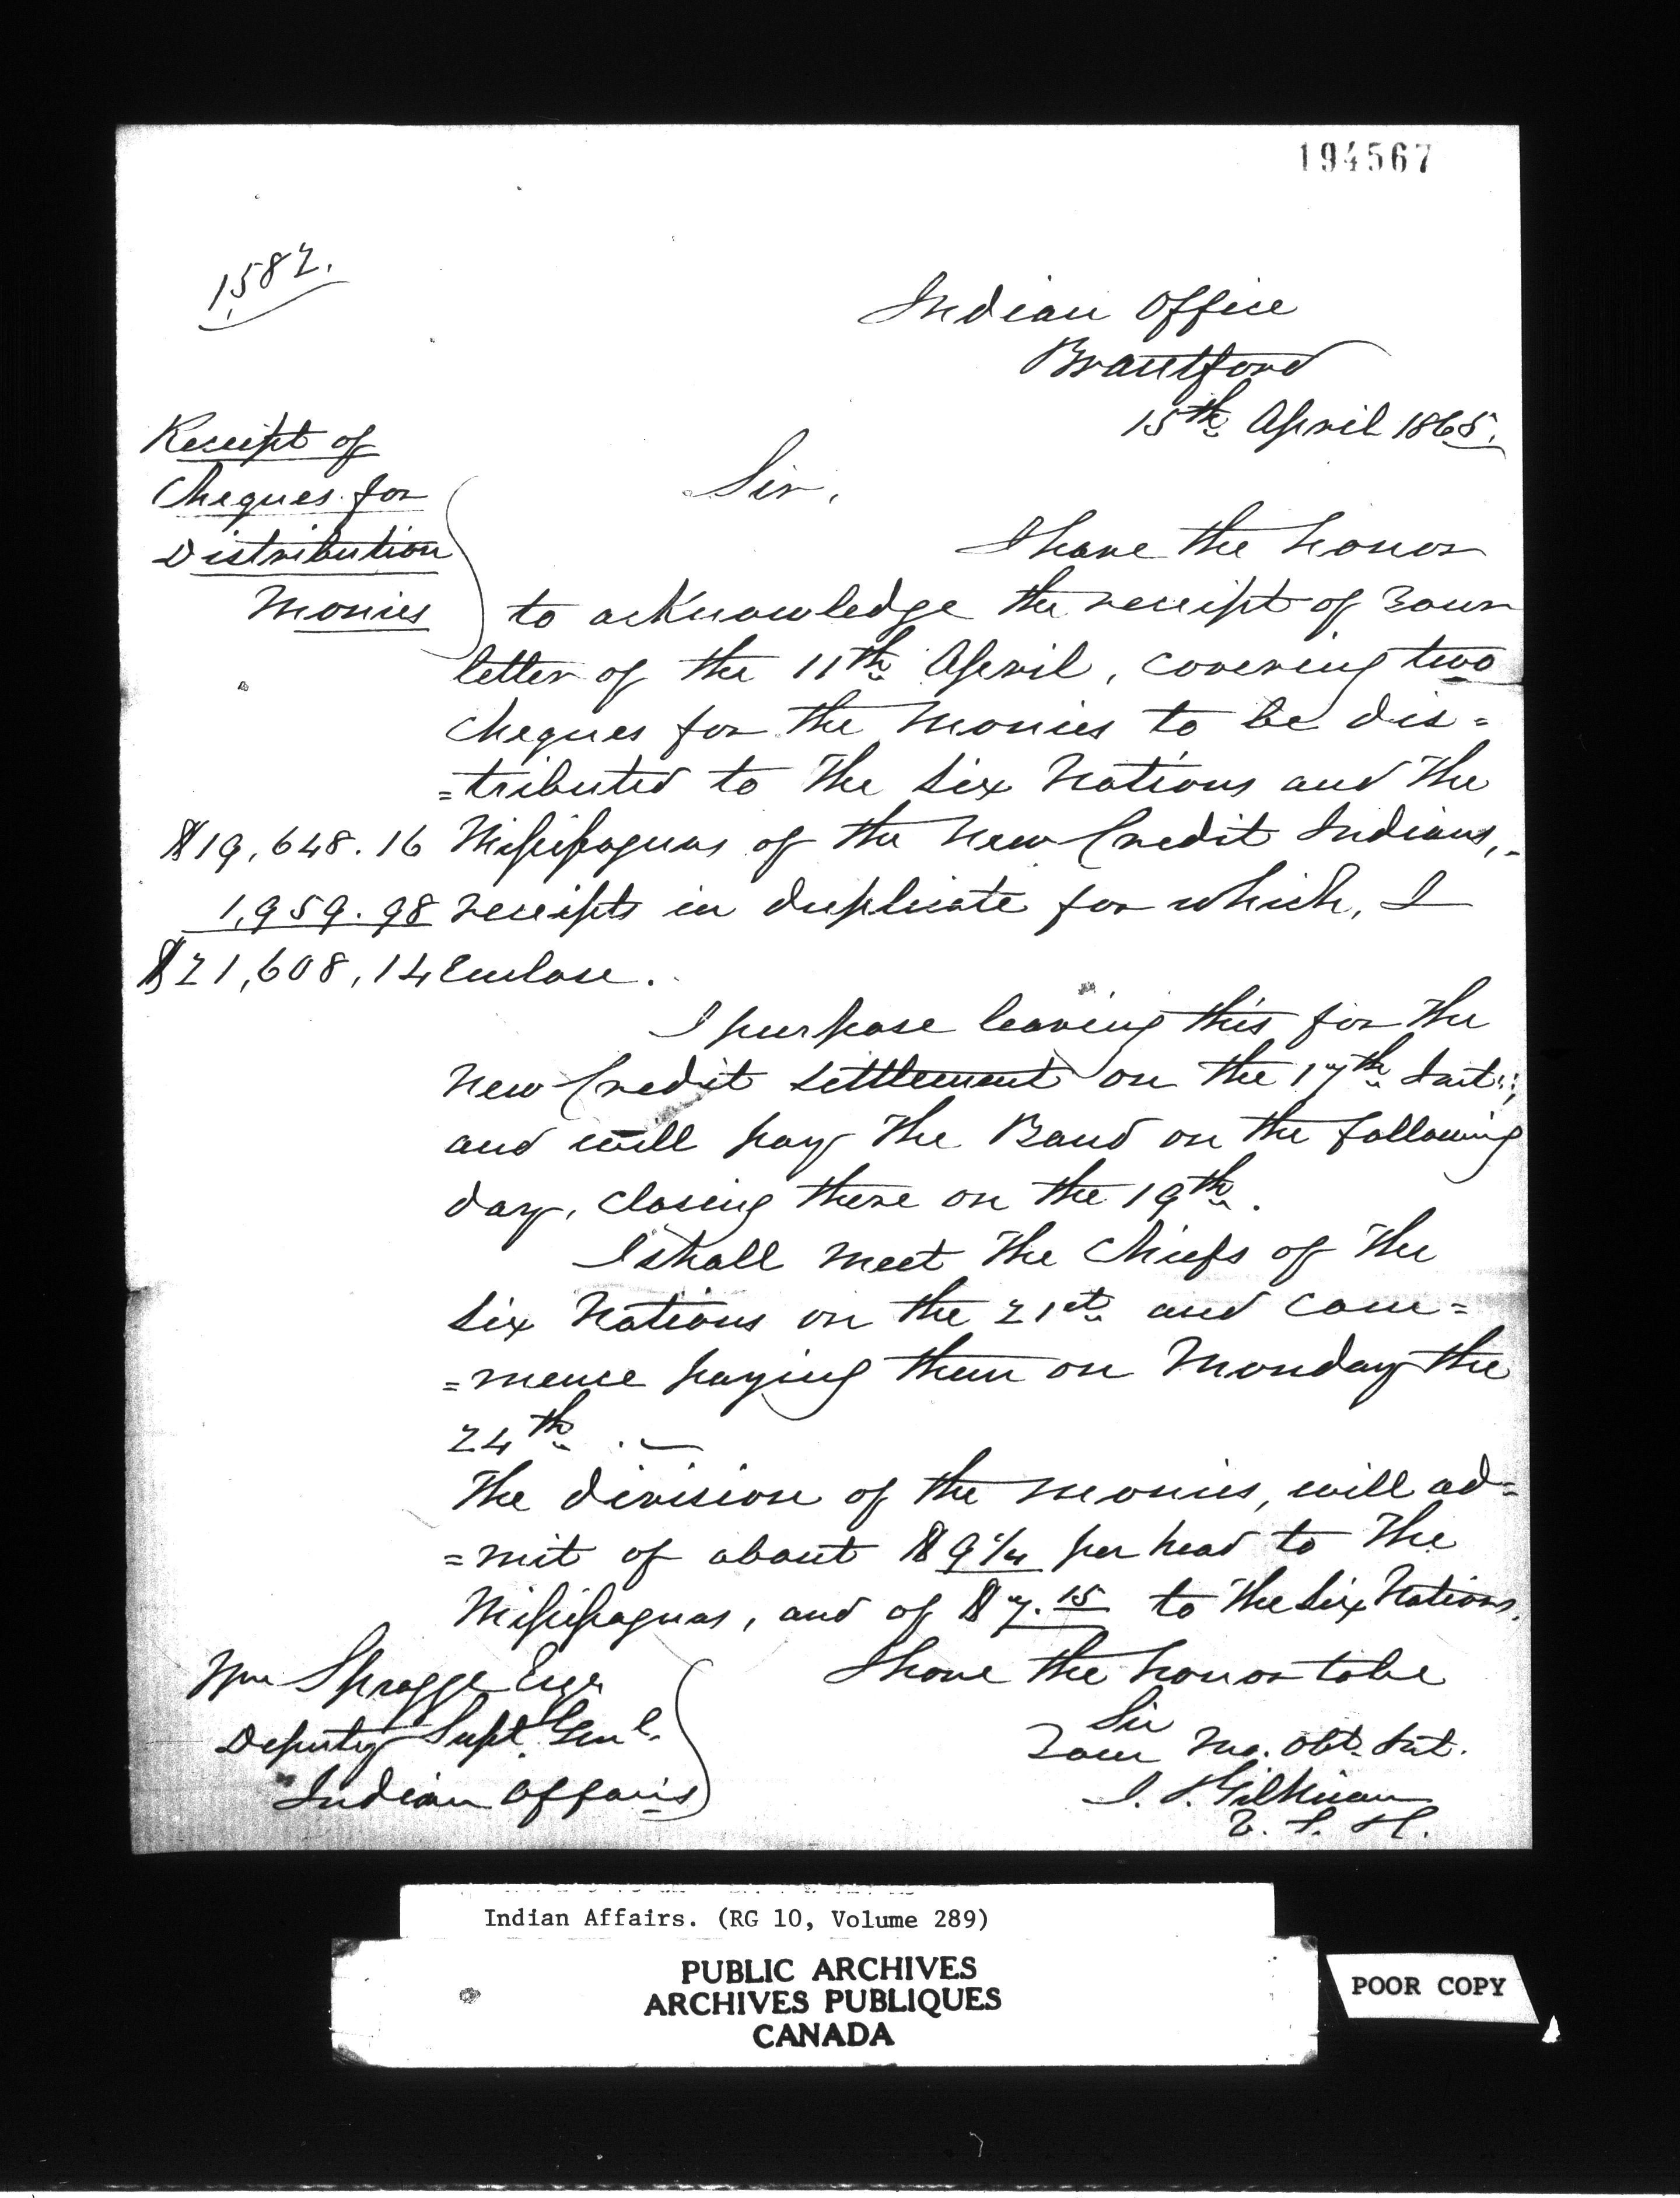 194567
1582.
Indian Office
Brantford
15th April 1865.
Receipt of
Cheques for
Distribution
Monies
Sir,
I have the honor
to acknowledge the receipt of Your
letter of the 11th April, covering two
cheques for the Monies to be dis=
=tributed to the Six Nations and the
$19,648.16 Mississaguas of the New Credit Indians,-
1,959.98 receipts in duplicate for which, I
$21,608,14 Enclose.
I purpose leaving this for the
New Credit settlement on the 17th Inst;
and will pay the Band on the following
day, closing there on the 19th.
I shall meet the Chiefs of the
Six Nations on the 21st and com=
=mence paying them on Monday the
24th.-
The division of the monies, will ad=
=mit of about $9 1/4 per head to the
Mississaguas, and of $7.15 to the Six Nations.
I have the honor to be
Sir
Your Mo. Obt. Svt.
J. T. Gilkison
V. S. I.
Wm Spragge Esqr
Deputy Supt. Genl.
Indian Affairs
Indian Affairs. (RG 10, Volume 289)
PUBLIC ARCHIVES
ARCHIVES PUBLIQUES
CANADA
POOR COPY